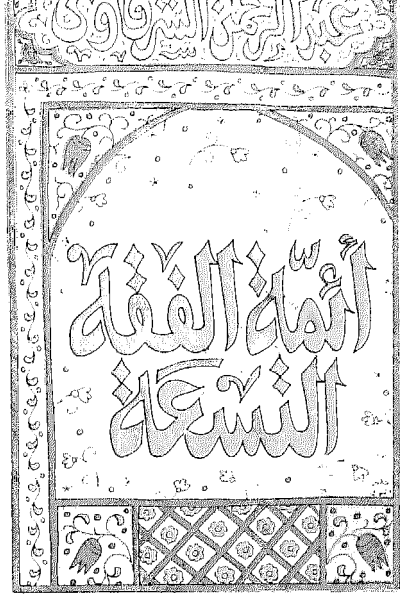 عبد الرحمن الشرقاوي
أئمة الفقه
التسعة